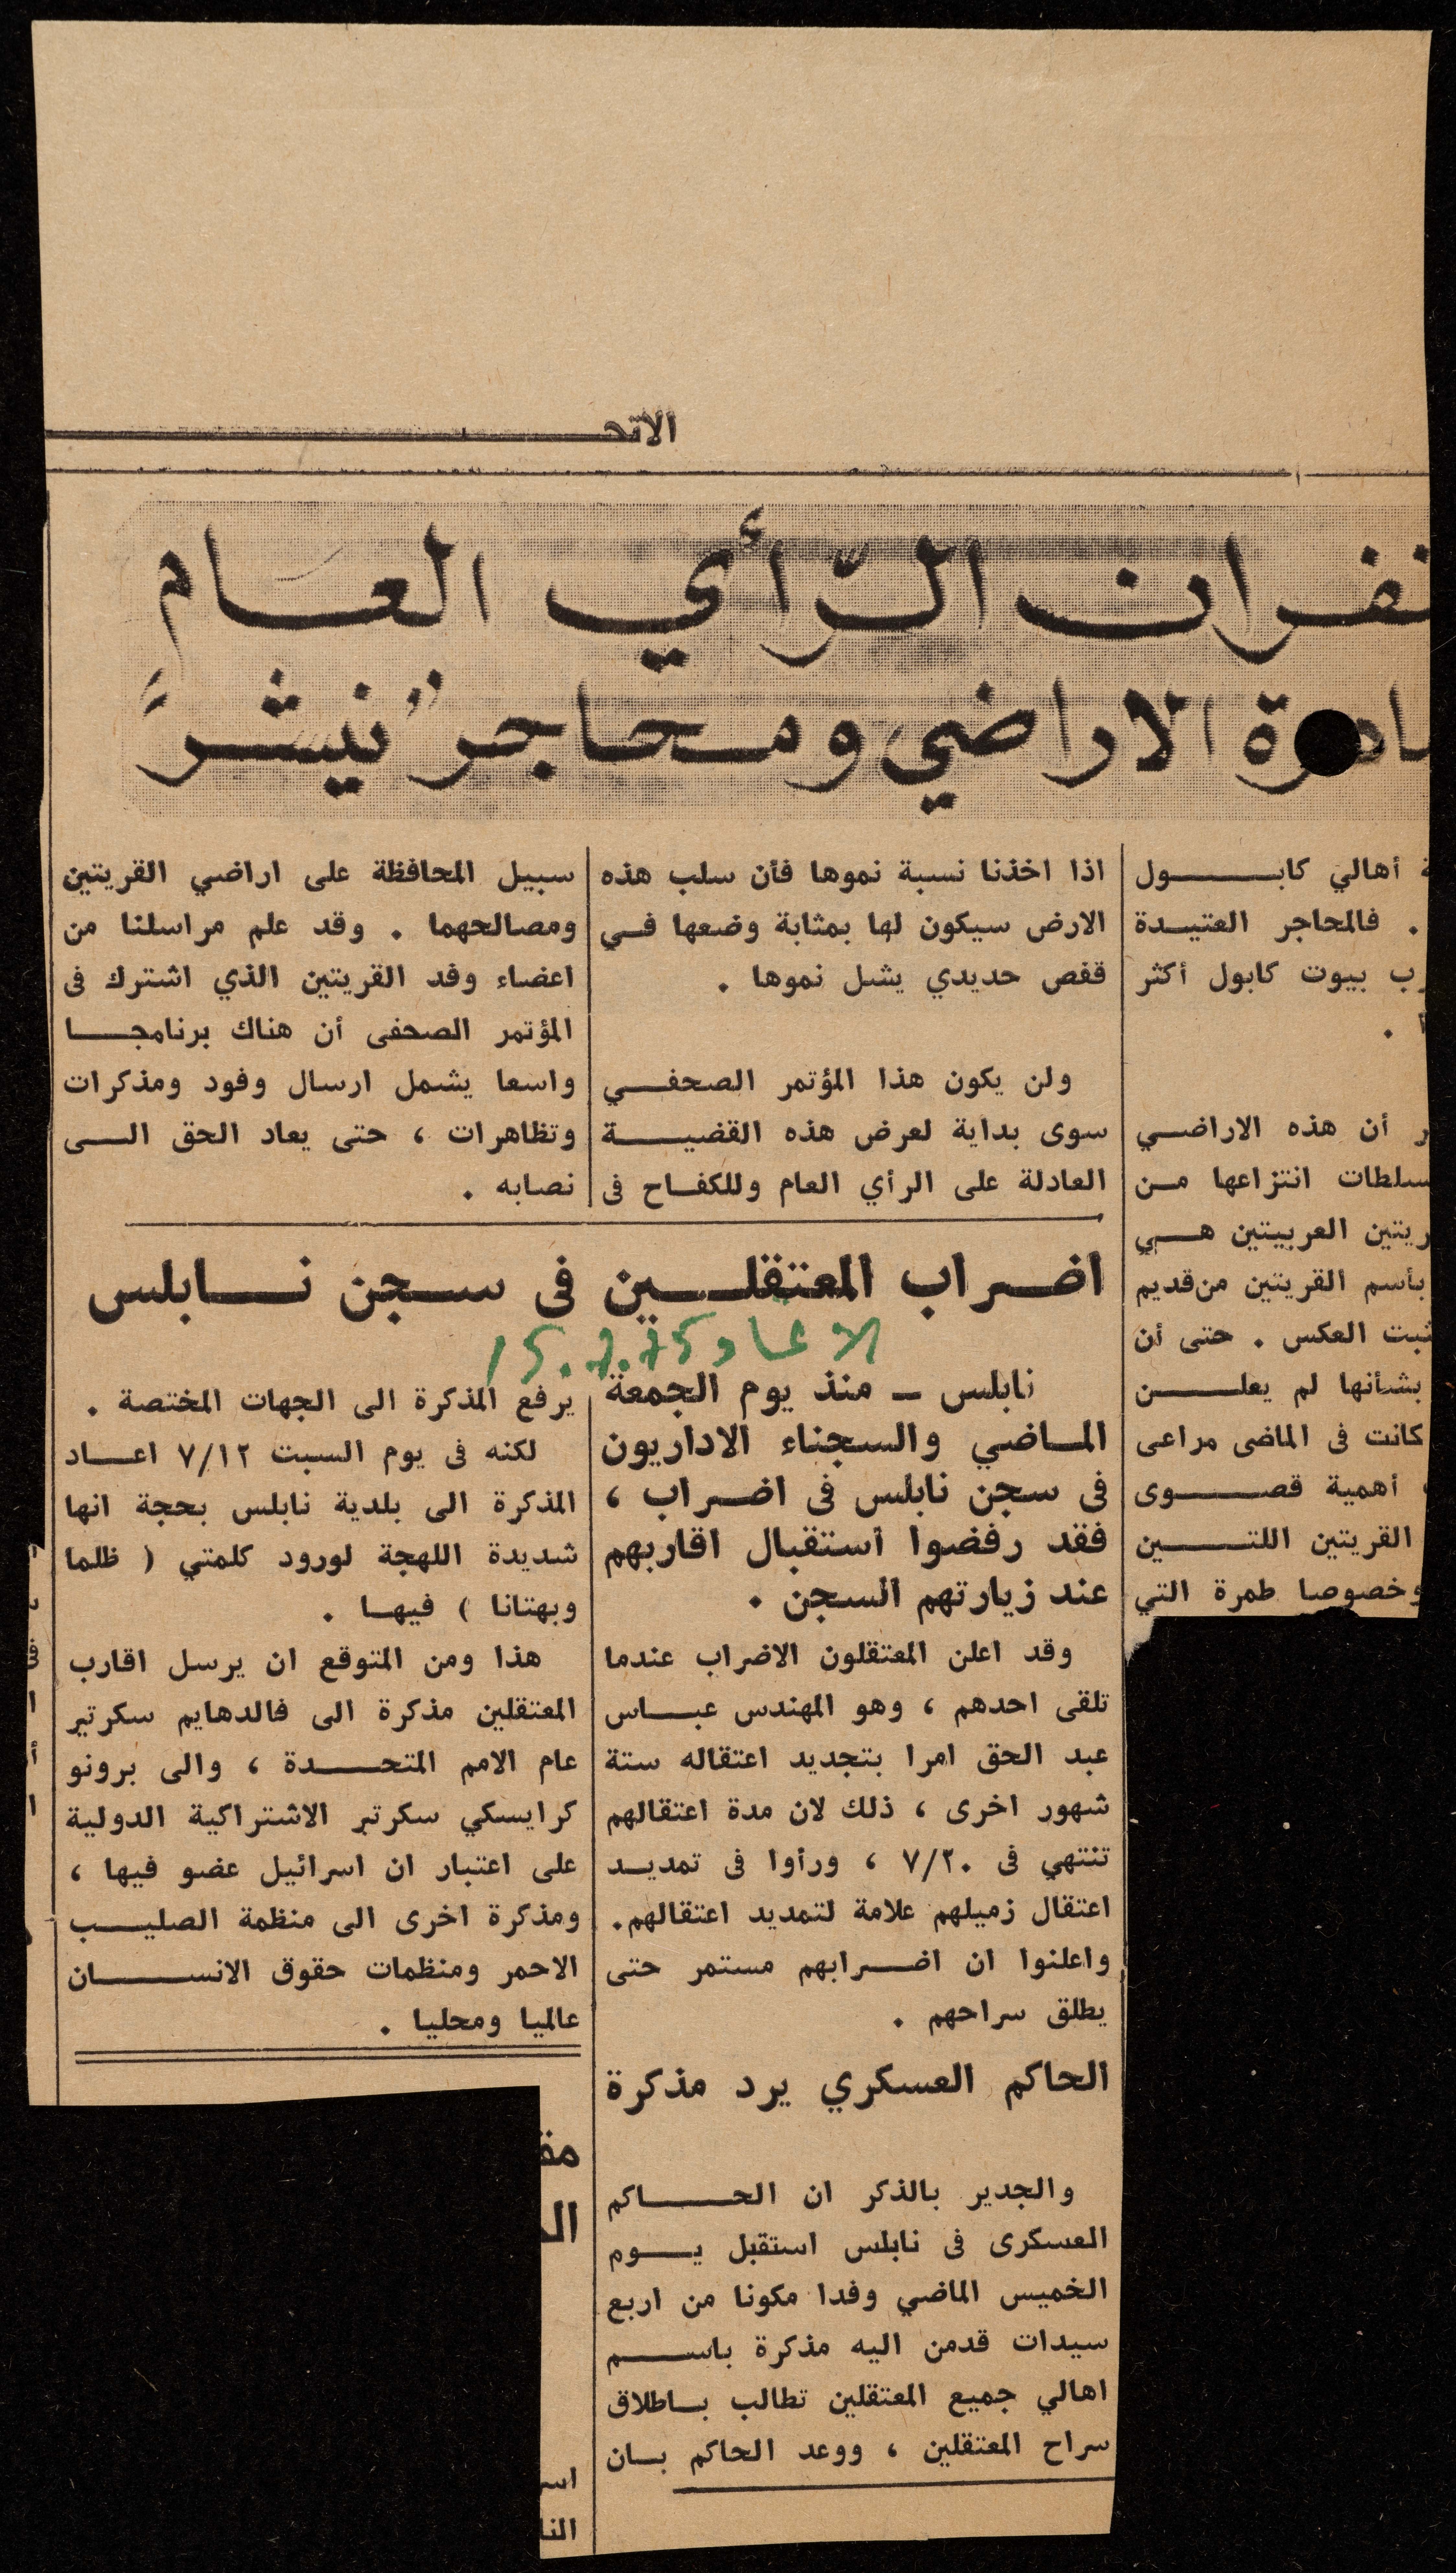 الاتحـ
ـنفران الرّأي العَام
ـادرة الاراضي ومحاجر "نيشر"
أهالي كابـــــول
. فالمحاجر العتيـدة
ـرب بيوت كابول أكثر
ـا .
أن هذه الاراضـي
ـسلطات انتزاعها مـن
ـريتين العربيتين هـي
بأسم القريتين من قديم
ـثبت العكس . حتى أن
بشأنها لم يعلـــــن
كانت فى الماضى مراعى
أهمية قصــــوى
القريتين اللتــــين
وخصوصا طمرة التي
اذا اخذنا نسبة نموها فأن سلب هذه
الارض سيكون لها بمثابة وضعها فـي
قفص حديدي يشل نموها .
ولن يكون هذا المؤتمر الصحفـي
سوى بداية لعرض هذه القضيـــة
العادلة على الرأي العام وللكفـاح فى
سبيل المحافظة على اراضي القريتين
ومصالحهما . وقد علم مراسلنا من
اعضاء وفد القريتين الذي اشترك فى
المؤتمر الصحفى أن هناك برنامجـــا
واسعا يشمل ارسال وفود ومذكرات
وتظاهرات ، حتى يعاد الحق الـى
نصابه .
اضــراب المعتقلــــين فى ســجن نـــــابلس
الاتحاد 15.7.75
نابلس ــ منذ يوم الجمعة
المـاضي والسجناء الاداريون
فى سجن نابلس فى اضـراب ،
فقد رفضوا استقبال اقاربهم
عند زيارتهم السجن .
وقد اعلن المعتقلون الاضراب عندما
تلقى احدهم ، وهو المهندس عبــاس
عبد الحق امرا بتجديد اعتقاله ستة
شهور اخرى ، ذلك لان مدة اعتقالهم
تنتهي فى ٧/٢٠ ، ورأوا فى تمديـد
اعتقال زميلهم علامة لتمديد اعتقالهم.
واعلنوا ان اضـــرابهم مستمر حتى
يطلق سراحهم .
الحاكم العسكري يرد مذكرة
والجدير بالذكر ان الحــــاكم
العسكرى فى نابلس استقبل يـــوم
الخميس الماضي وفدا مكونا من اربع
سيدات قدمن اليه مذكرة باســـم
اهالي جميع المعتقلين تطالب بـاطلاق
سراح المعتقلين ، ووعد الحاكم بـان
يرفع المذكرة الى الجهات المختصة .
لكنه فى يوم السبت ٧/١٢ اعــاد
المذكرة الى بلدية نابلس بحجة انها
شديدة اللهجة لورود كلمتي ( ظلما
وبهتانا ) فيهـا .
هذا ومن المتوقع ان يرسل اقارب
المعتقلين مذكرة الى فالدهايم سكرتير
عام الامم المتحــــدة ، والى برونو
كرايسكي سكرتير الاشتراكية الدولية
على اعتبار ان اسرائيل عضو فيها ،
ومذكرة اخرى الى منظمة الصليــب
الاحمر ومنظمات حقوق الانســـــان
عالميا ومحليا .